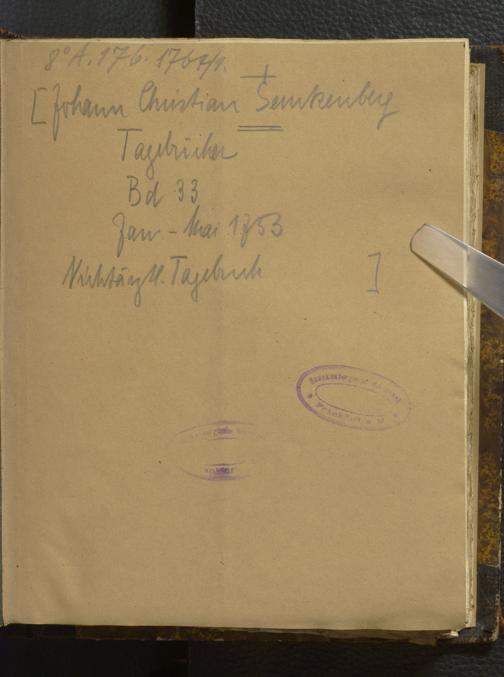 8° A. 176. 1764/1.
[Johann Christian Senckenberg
Tagebücher
Bd 33
Jan - Mai 1753
Nichtärztl. Tagebuch ]
Frankfurt a M